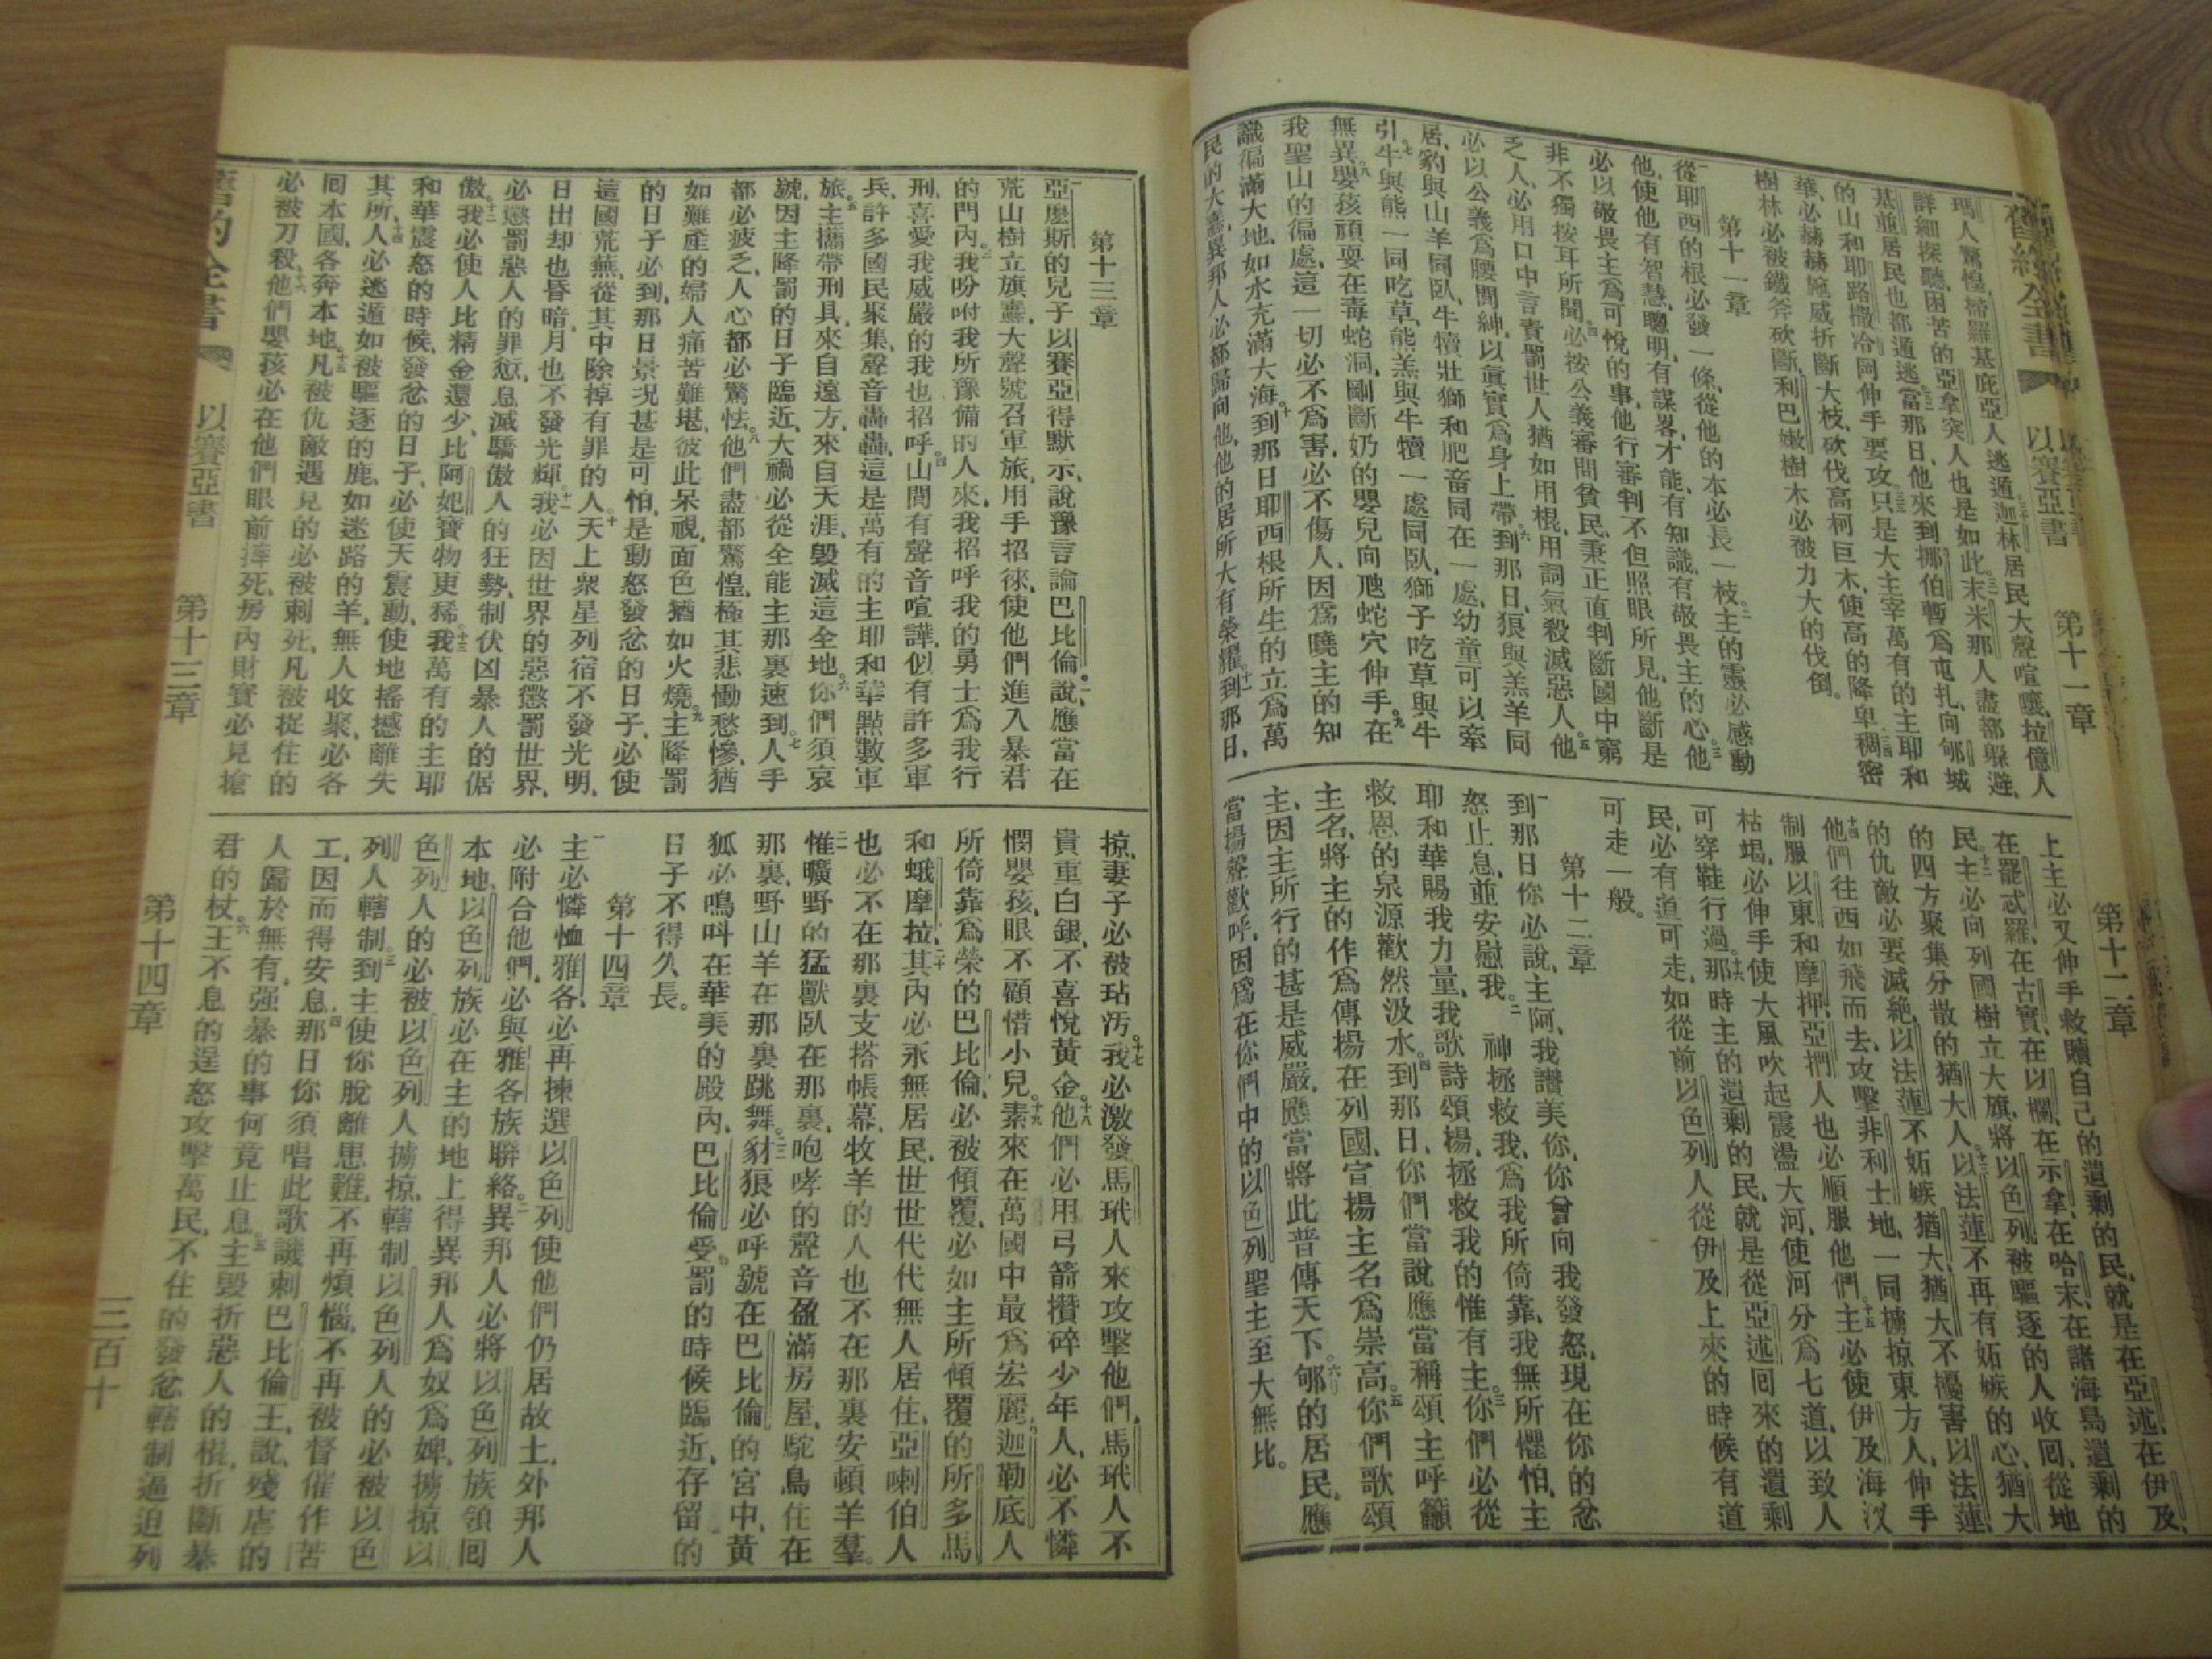 舊約全書 以賽亞書 第十一章 第十二章
瑪人驚惶、抻羅基庇亞人逃遁、三十迦林居民大聲喧嚷、拉億人
詳細探聽、困苦的亞拿突人也是如此、三一末米那人盡都躲避、
基並居民也都逋逃、三二當那日、他來到挪伯暫爲屯扎、向郇城
的山和耶路撒冷岡伸手要攻、三三只是大主宰萬有的主耶和
華、必赫赫施威折斷大枝、砍伐高柯巨木、使高的降卑、三四稠密
樹林必被鐵斧砍斷、利巴嫩樹木必被力大的伐倒。
第十一章
一從耶西的根必發一條、從他的本必長一枝、二主的靈必感動
他、使他有智慧、聰明、有謀畧、才能、有知識、有敬畏主的心、三他
必以敬畏主爲可悅的事、他行審判不但照眼所見、他斷是
非不獨按耳所聞、四必按公義審問貧民、秉正直判斷國中窮
乏人、必用口中言責罰世人猶如用棍、用詞氣殺滅惡人、五他
必以公義爲腰間紳、以眞實爲身上帶、六到那日、狼與羔羊同
居、豹與山羊同臥、牛犢壯獅和肥畜同在一處、幼童可以牽
引、七牛與熊一同吃草、熊羔與牛犢一處同臥、獅子吃草與牛
無異、八嬰孩頑耍在毒蛇洞、剛斷奶的嬰兒向虺蛇穴伸手、九在
我聖山的徧處、這一切必不爲害、必不傷人、因爲曉主的知
識徧滿大地、如水充滿大海、十到那日耶西根所生的立爲萬
民的大纛、異邦人必都歸向他、他的居所大有榮耀、十一到那日、
上主必又伸手救贖自己的遺剩的民、就是在亞述、在伊及、
在罷忒羅、在古實、在以欄、在示拿、在哈末、在諸海島遺剩的
民、十二主必向列國樹立大旗、將以色列被驅逐的人收回、從地
的四方聚集分散的猶大人、十三以法蓮不再有妬嫉的心、猶大
的仇敵必要滅絶、以法蓮不妬嫉猶大、猶大不擾害以法蓮、
十四他們往西如飛而去、攻擊非利士地、一同擄掠東方人、伸手
制服以東和摩押、亞捫人也必順服他們、十五主必使伊及海汊
枯竭、必伸手使大風吹起震盪大河、使河分爲七道、以致人
可穿鞋行過、十六那時主的遺剩的民、就是從亞述回來的遺剩
民、必有道可走、如從前以色列人從伊及上來的時候有道
可走一般。
第十二章
一到那日你必說、主阿、我讚美你、你曾向我發怒、現在你的忿
怒止息、並安慰我、二神拯救我、爲我所倚靠、我無所懼怕、主
耶和華賜我力量、我歌詩頌揚、拯救我的惟有主、三你們必從
救恩的泉源歡然汲水、四到那日、你們當說應當稱頌主呼籲
主名、將主的作爲傳揚在列國、宣揚主名爲崇高、五你們歌頌
主、因主所行的甚是威嚴、應當將此普傳天下、六郇的居民、應
當揚聲歡呼、因爲在你們中的以色列聖主至大無比。
第十三章
一亞麽斯的兒子以賽亞得默示、說豫言論巴比倫。二說、應當在
荒山樹立旗纛、大聲號召軍旅、用手招徠、使他們進入暴君
的門內、三我吩咐我所豫備的人來、我招呼我的勇士爲我行
刑、喜愛我威嚴的我也招呼、四山間有聲音喧譁、似有許多軍
兵、許多國民聚集、聲音轟轟、這是萬有的主耶和華點數軍
旅、五主攜帶刑具、來自遠方、來自天涯、毀滅這全地、六你們須哀
號、因主降罰的日子臨近、大禍必從全能主那裏速到、七人手
都必疲乏、人心都必驚怯、八他們盡都驚惶、極其悲慟愁慘、猶
如難產的婦人痛苦難堪、彼此呆視、面色猶如火燒、九主降罰
的日子必到、那日景况甚是可怕、是動怒發忿的日子、必使
這國荒蕪、從其中除掉有罪的人、十天上衆星列宿不發光明、
日出却也昏暗、月也不發光輝、十一我必因世界的惡懲罰世界、
必懲罰惡人的罪愆、息滅驕傲人的狂勢、制伏凶暴人的倨
傲、十二我必使人比精金還少、比阿妃寶物更稀、十三我萬有的主耶
和華震怒的時候、發忿的日子、必使天震動、使地搖撼離失
其所、十四人必逃遁如被驅逐的鹿、如迷路的羊、無人收聚、必各
回本國、各奔本地、十五凡被仇敵遇見的必被刺死、凡被捉住的
必被刀殺、十六他們嬰孩必在他們眼前摔死、房內財寶必見搶
掠、妻子必被玷汚、十七我必激發馬玳人來攻擊他們、馬玳人不
貴重白銀、不喜悅黃金、十八他們必用弓箭攢碎少年人、必不憐
憫嬰孩、眼不顧惜小兒、十九素來在萬國中最爲宏麗、迦勒底人
所倚靠爲榮的巴比倫、必被傾覆、必如主所傾覆的所多馬
和蛾摩拉、二十其內必永無居民、世世代代無人居住、亞喇伯人
也必不在那裏支搭帳幕、牧羊的人也不在那裏安頓羊羣。
二一惟曠野的猛獸臥在那裏、咆哮的聲音盈滿房屋、駝鳥住在
那裏、野山羊在那裏跳舞、二二豺狼必呼號在巴比倫的宮中、黃
狐必鳴呌在華美的殿內、巴比倫受罰的時候臨近、存留的
日子不得久長。
第十四章
一主必憐恤雅各、必再揀選以色列使他們仍居故土、外邦人
必附合他們、必與雅各族聯絡、二異邦人必將以色列族領回
本地、以色列族必在主的地上得異邦人爲奴爲婢、擄掠以
色列人的必被以色列人擄掠、轄制以色列人的必被以色
列人轄制、三到主使你脫離患難、不再煩惱、不再被督催作苦
工、因而得安息、四那日你須唱此歌譏刺巴比倫王、說、殘虐的
人歸於無有、强暴的事何竟止息、五主毀折惡人的棍、折斷暴
君的杖、六王不息的逞怒攻擊萬民、不住的發忿轄制逼迫列
舊約全書 以賽亞書 第十三章 第十四章 三百十